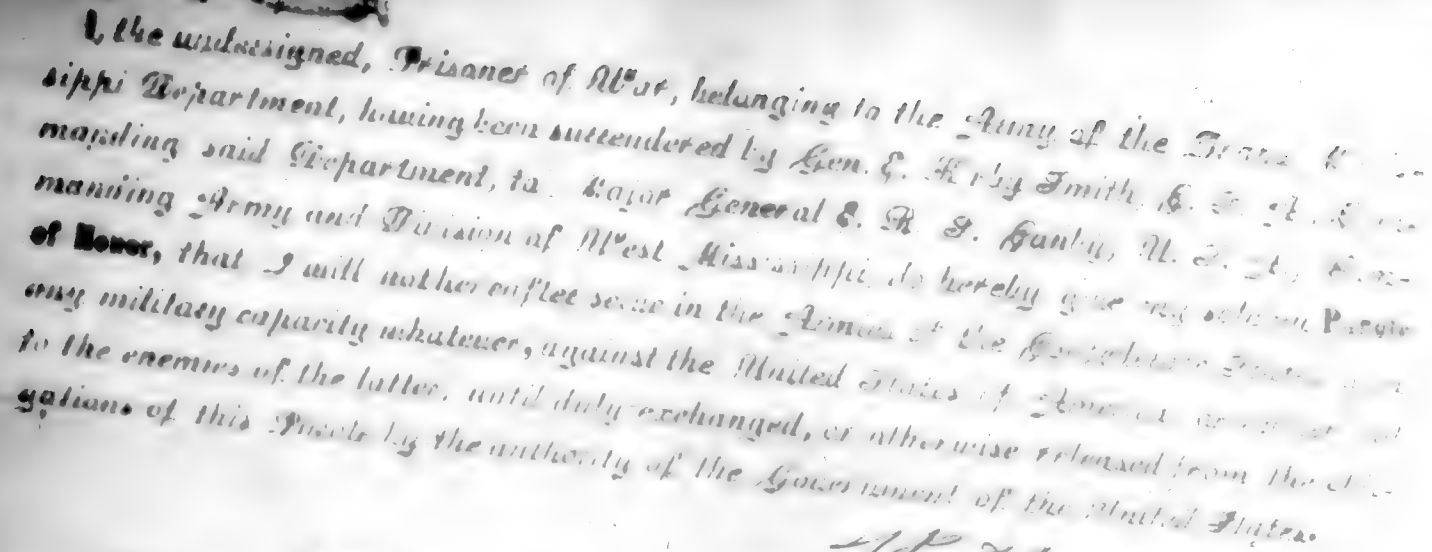 I, the undersigned, Prisoner of War, belonging to the Army of the Trans
sippi Department, having been surrendered by Gen. E. Kirby Smith, C. S. A.
manding said Department, to Major General E. R. S. Canby, U. S. A.,
manding Army and Division of West Mississippi, do hereby give my solemn Parole
of Honor, that I will not hereafter serve in the Armies of the Confederate States
any military capacity whatever, against the United States of America
to the enemies of the latter, until duly exchanged, or otherwise released from the
gations of this Parole by the authority of the Government of the United States.